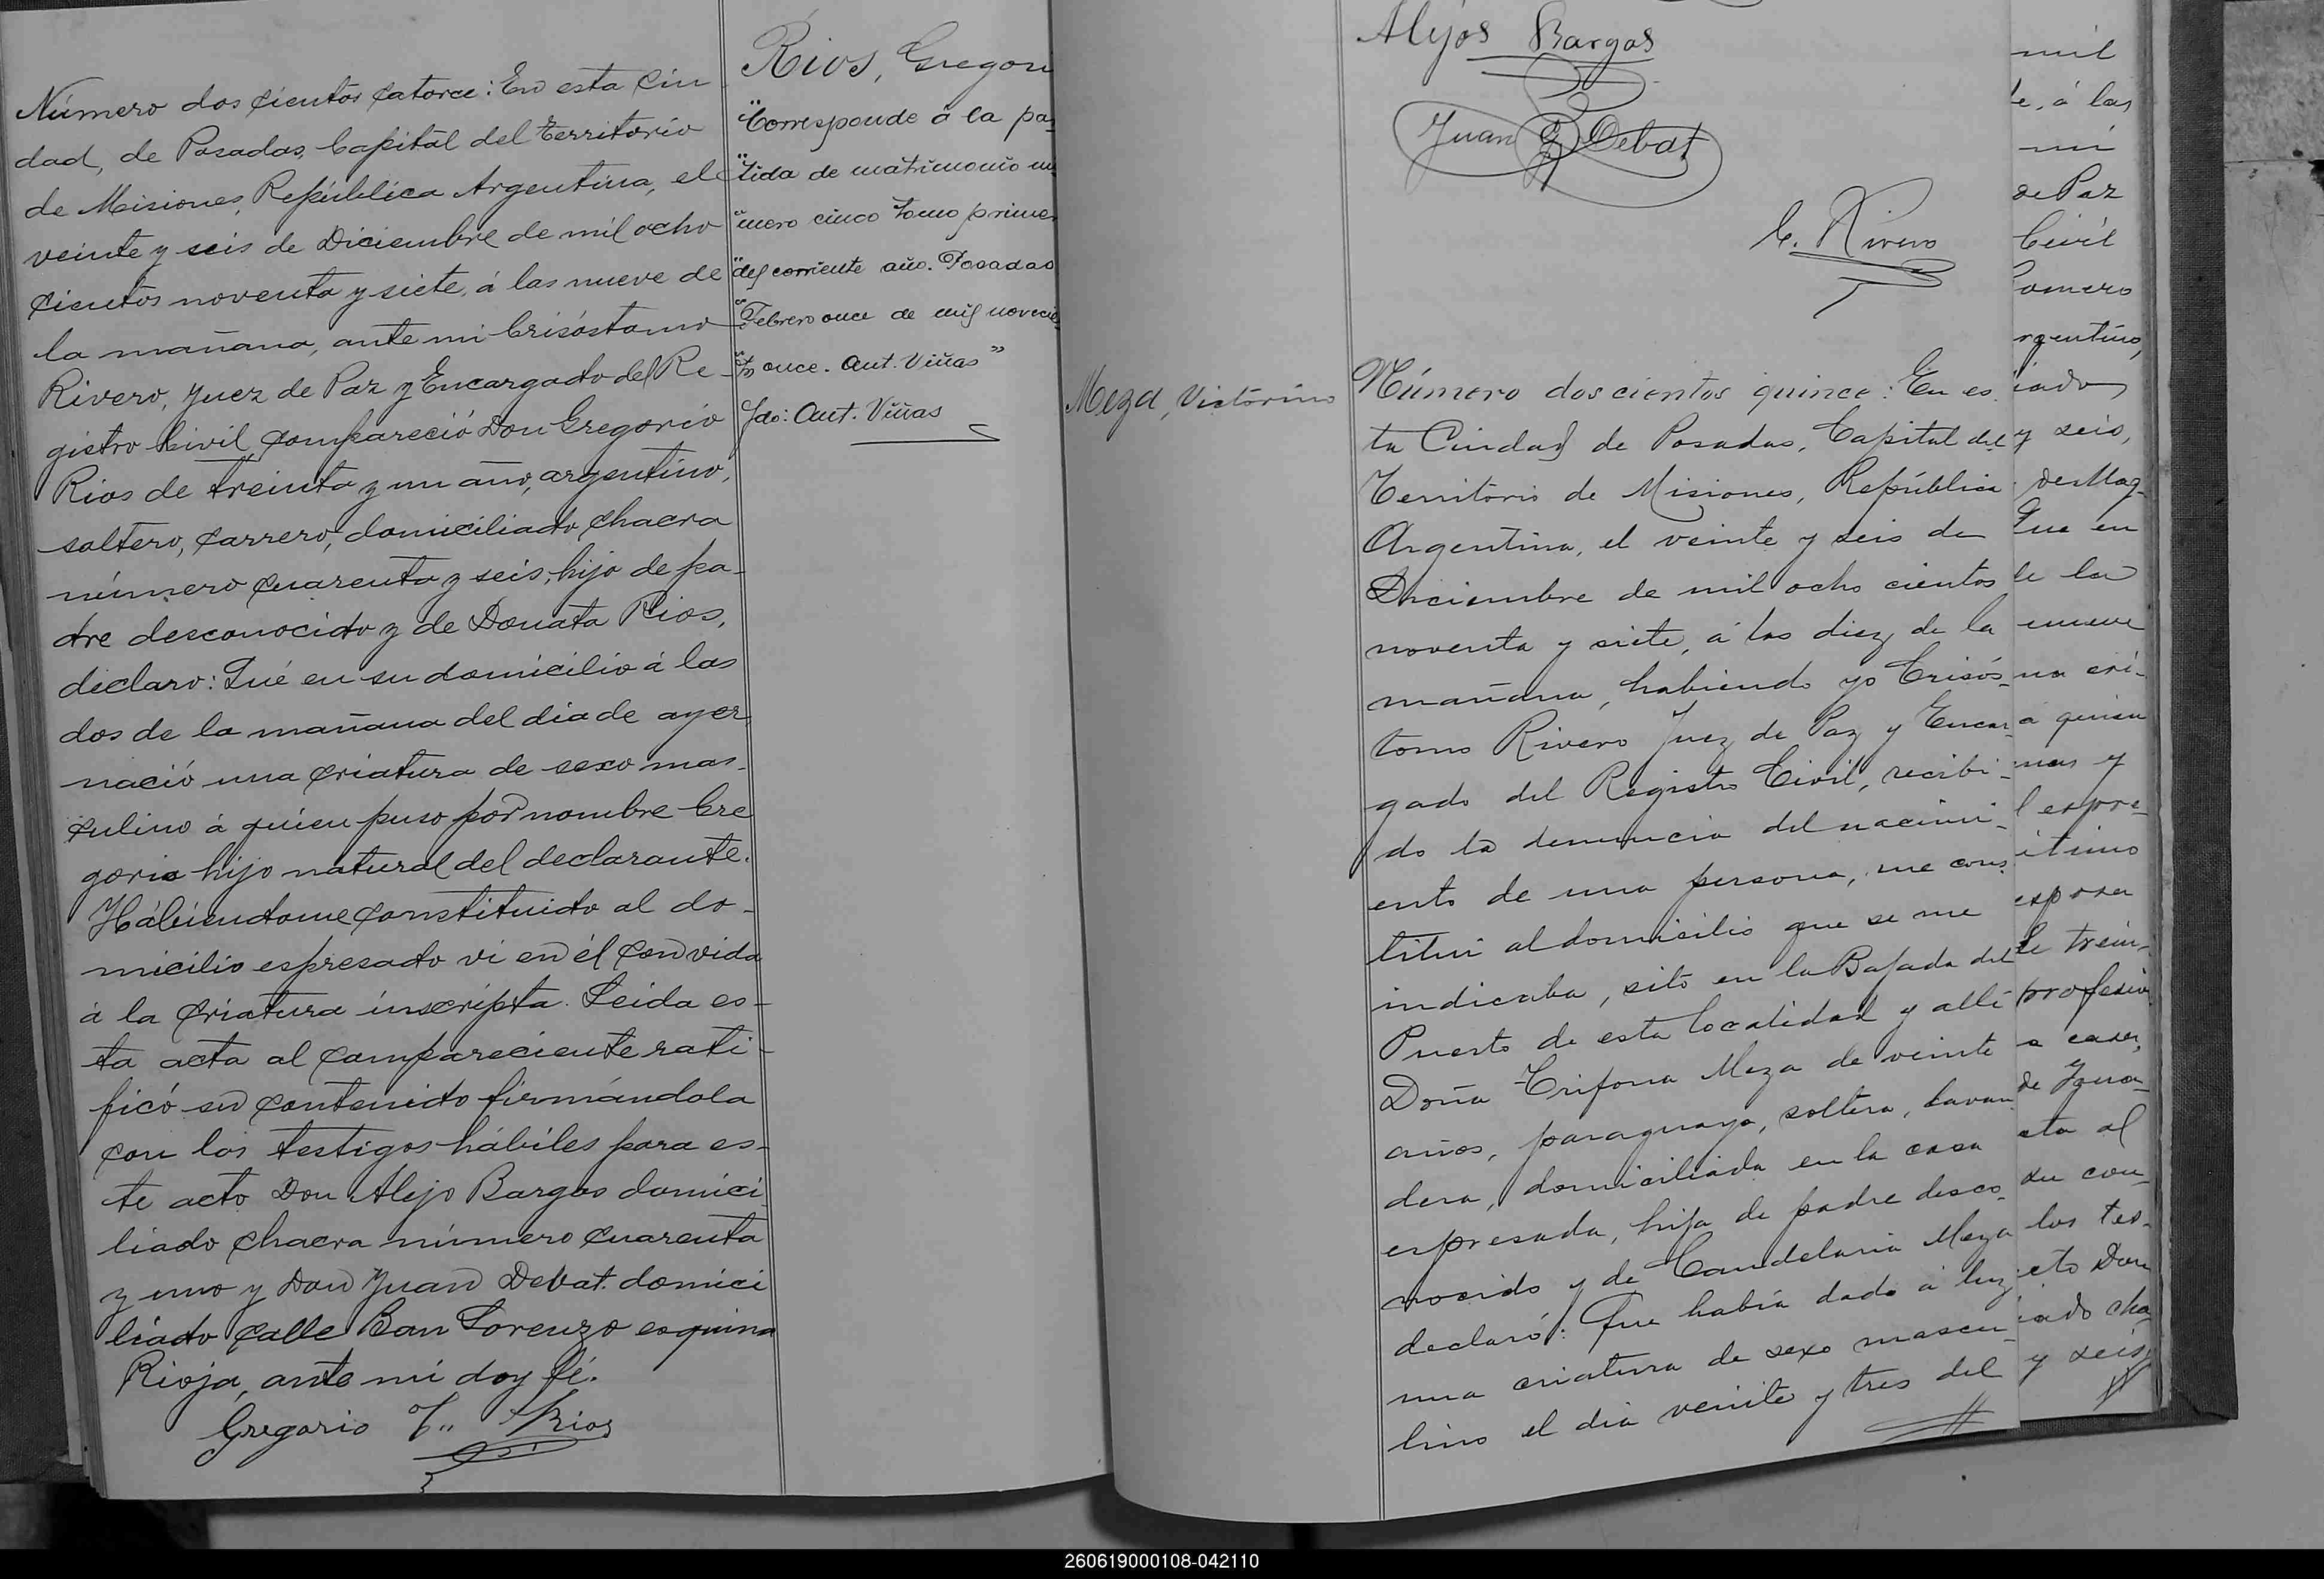 Número dos cientos catorce: En esta Ciu
dad, de Posadas, Capital del Territorio
de Misiones, República Argentina, el
veinte y seis de Diciembre de mil ocho
cientos noventa y siete, á las nueve de
la mañana, ante mi Crisóstomo
Rivero, Juez de Paz y Encargado del Re
gistro Civil, compareció Don Gregorio
Rios de treinta y un año, argentino,
soltero, carrero, domiciliado chacra
número cuarenta y seis, hijo de pa-
dre desconocido y de Donata Rios,
declaro: Qué en su domicilio á las
dos de la mañana del dia de ayer
nació una criatura de sexo mas-
culino á quien puso por nombre Gre
gorio hijo natural del declarante.
Hábiendome constituido al do-
micilio espresado vi en él con vida
á la criatura inscripta. Leida es-
ta acta al compareciente rati-
ficó su contenido firmándola
con los testigos hábiles para es-
te acto Don Alejo Bargas domici-
liado chacra número cuarenta
y uno y Don Juan Debat domici
liado calle San Lorenzo esquina
Rioja, ante mi doy fé.
Gregorio F. Rios
Rios, Gregori
"Corresponde á la par
"tida de matrimonio nú
"mero cinco tomo primer
"del corriente año. Posadas
"Febrero once de mil novecie
"tos once. Ant. Viñas"
Fdo: Ant. Viñas
Alejos Bargas
Juan Debat
C. Rivero
Meza, Victorino
Número doscientos quince: En es
ta Ciudad de Posadas, Capital del
Territorio de Misiones, República
Argentina, el veinte y seis de
Diciembre de mil ocho cientos
noventa y siete, á las diez de la
mañana, habiendo yo Crisós-
tomo Rivero Juez de Paz y Encar-
gado del Registro Civil, recibi-
do la denuncia del nacimi-
ento de una persona, me cons-
titui al domicilio que se me
indicaba, sito en la Bajada del
Puerto de esta localidad y alli
Doña Trifona Meza de veinte
años, paraguaya, soltera, lavan
dera, domiciliada en la casa
espresada, hija de padre desco-
nocido y de Candelaria Meza
declaró: Que habia dado á luz
una criatura de sexo mascu-
lino el dia veinte y tres del
mil
te, á las
mi
de Paz
Civil
omero
rgentino,
iado
y seis,
de Mag-
Que en
de la
nueve
na cri-
a quien
nas y
l espre-
ítimo
esposa
de trein-
profesion
a casa,
de Igna-
cta al
su con-
los tes-
cto Don
iado cha
y seis,
260619000108-042110